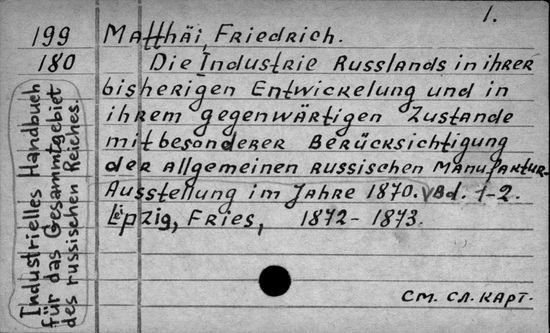 1.
199 Matthäi, Friedrich.
180 Die Industrie Russlands in ihrer
bisherigen Entwickelung und in
ihrem gegenwärtigen Zustande
mit besonderer Berücksichtigung
der allgemeinen russischen Manufaktur-
Ausstellung im Jahre 1870. Bd. 1-2.
Leipzig, Fries, 1872-1873.
Industrielles Handbuch
für das Gesammtgebiet
des russischen Reiches.
См. сл. карт.